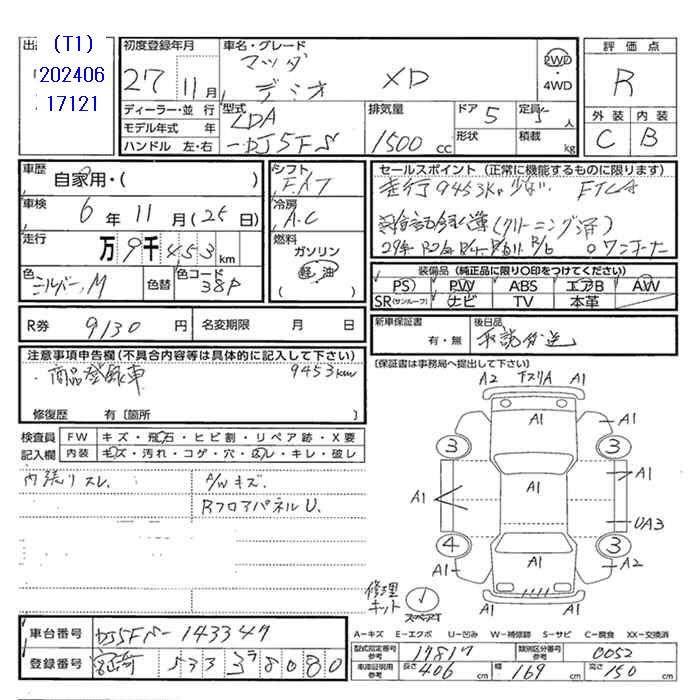 出品
(T1)
202406
17121
初度登録年月
27年11月
車名・グレード
マツダ
デミオ XD
2WD
・
4WD
評価点
R
外装 内装
C B
ディーラー・並行
モデル年式 年
ハンドル 左・右
型式
LDA
-DJ5FS
排気量
1500cc
ドア 5
形状
定員 5人
積載 kg
車歴
自家用・( )
車検 6年11月(25日)
走行 万9千453km
色 シルバーM 色替 色コード 38P
シフト
FAT
冷房
A.C
燃料
ガソリン
軽油
( )
セールスポイント (正常に機能するものに限ります)
走行9453Km 少ない ETC付
(クリーニング済)
ワンオーナー
装備品 (純正品に限り○印をつけてください)
PS PW ABS エアB AW
SR(サンルーフ) ナビ TV 本革
R券 9130円 名変期限 月 日
新車保証書
有・無
後日品
取説後送
(保証書は事務局へ提出して下さい)
注意事項申告欄(不具合内容等は具体的に記入して下さい)
・商品登録車 9453km
修復歴 有〔箇所 〕
検査員 FW キズ・飛石・ヒビ割・リペア跡・X要
記入欄 内装 キズ・汚れ・コゲ・穴・スレ・キレ・破レ
内張りスレ.
A/Wキズ.
RフロアパネルU.
A2 下スリA A1
A1 A1
3 3
A1
A1 A1 A1
UA3
4 3
A1 A1 A2
A1
修理
キット
スペアT
車台番号 DJ5FS-143347
登録番号 宮崎 533 ヲ 8080
A-キズ E-エクボ U-凹み W-補修跡 S-サビ C-腐食 XX-交換済
型式指定番号
参考
17817
類別区分番号
参考
0052
車庫証明用
参考
長さ 406cm 幅 169cm 高さ 150cm